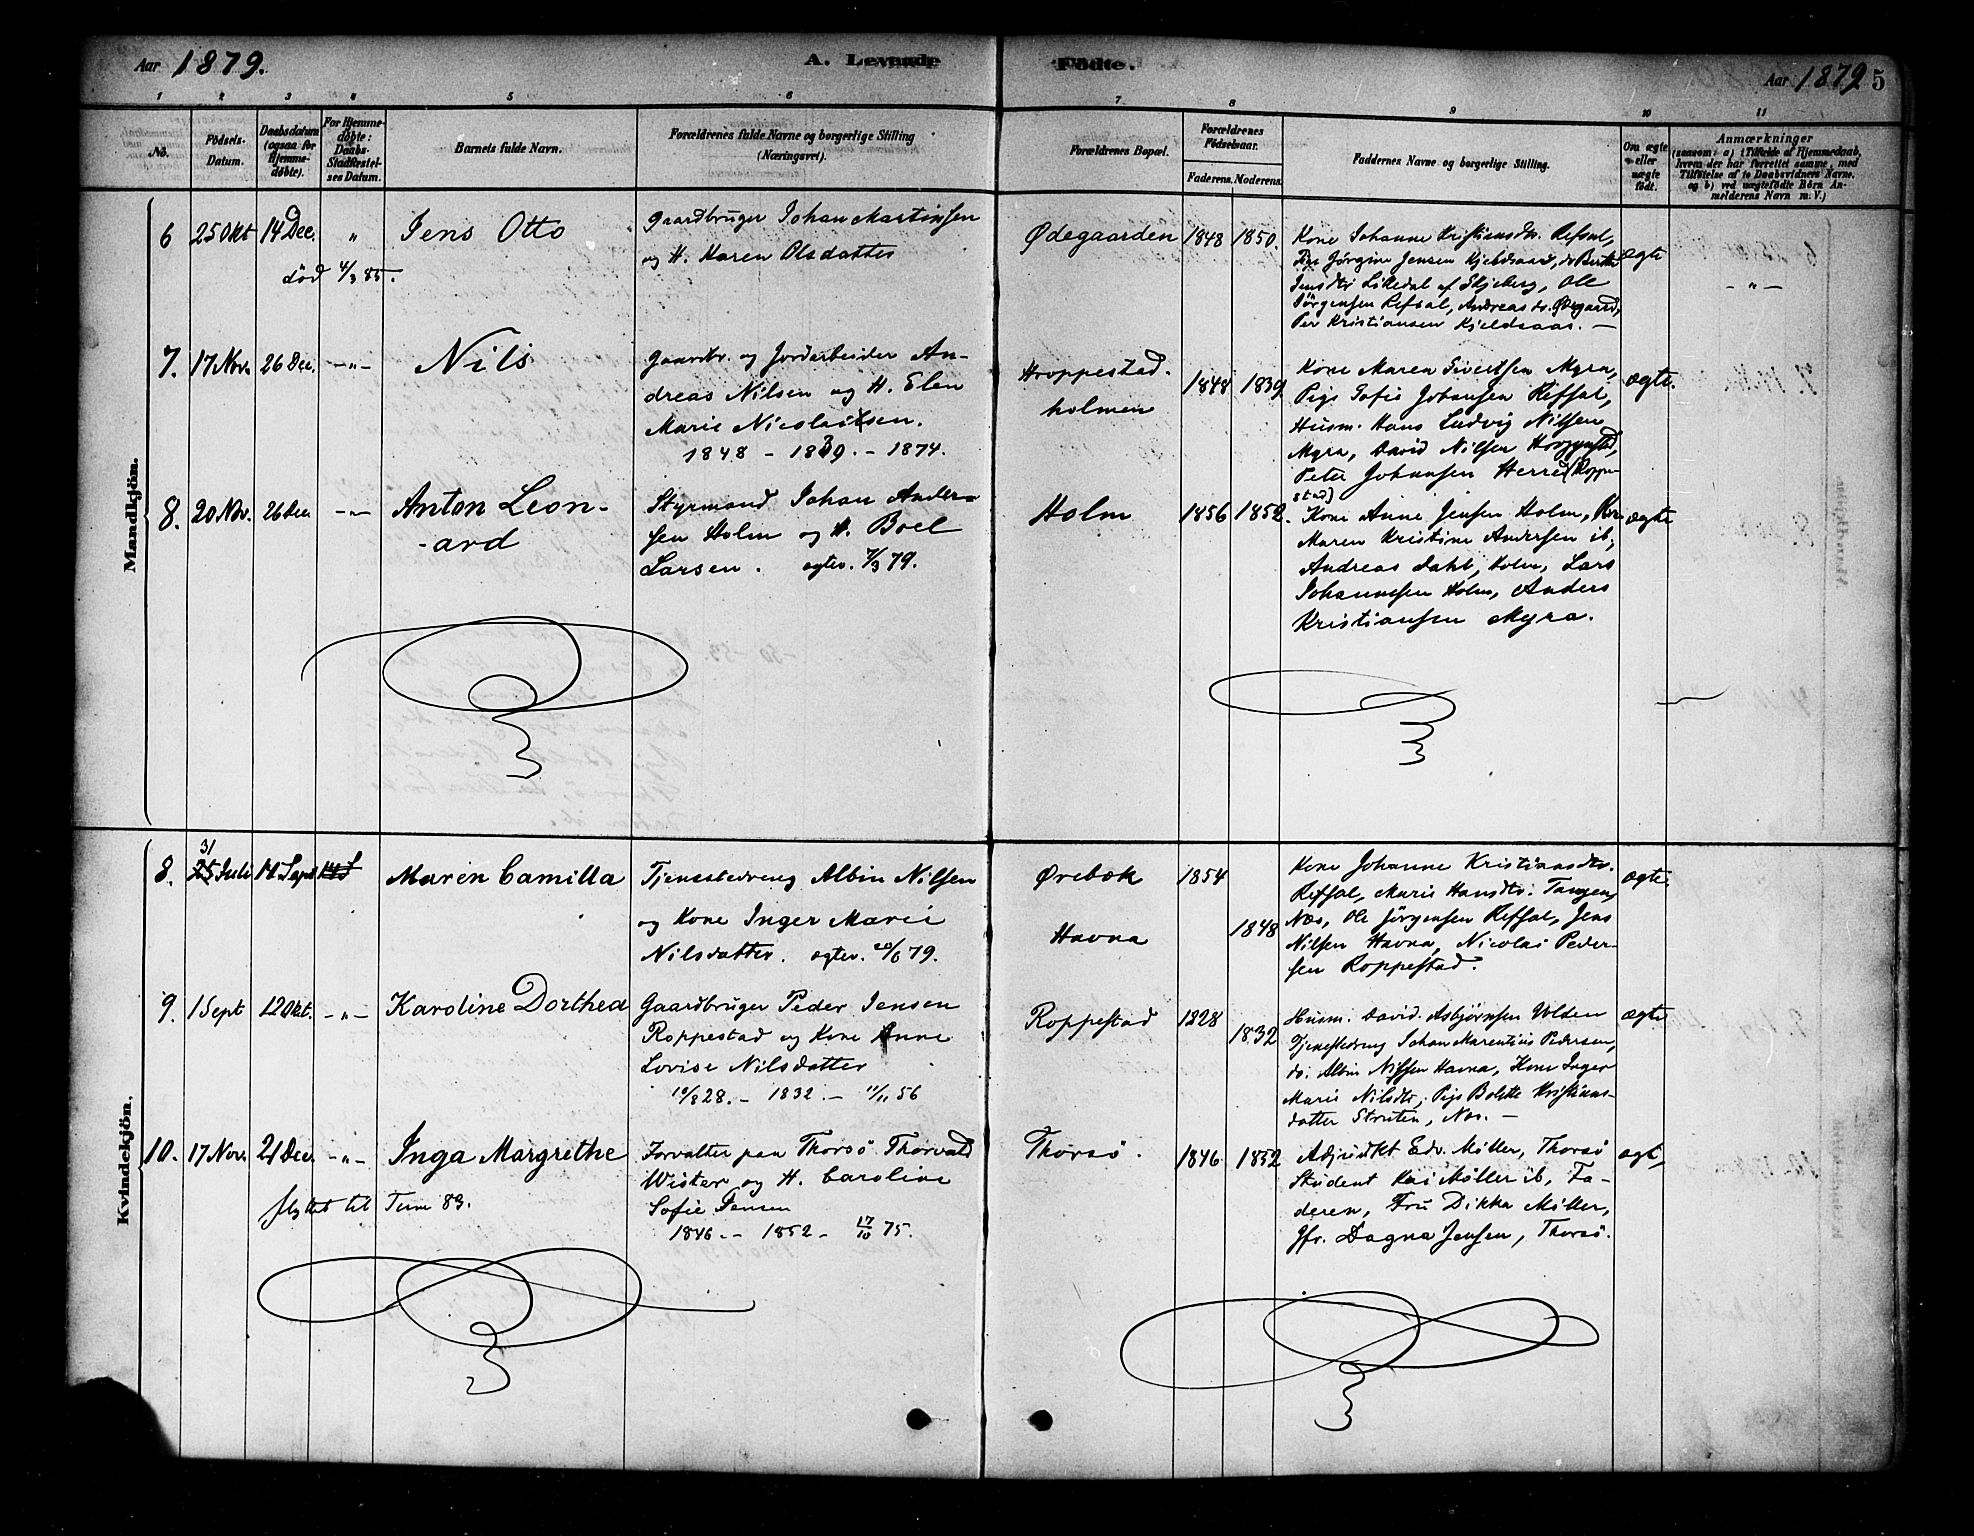 Aar 1879.
A. Levende
Fødte.
Aar 1879 5
1 2 3 4 5 6 7 8 9 10 11
No.
Födsels-
Datum.
Daabsdatum
(ogsaa for
Hjemme-
døbte).
For Hjemme-
døbte:
Daabs-
Stadfæstel-
ses Datum.
Barnets fulde Navn.
Forældrenes fulde Navne og borgerlige Stilling
(Næringsvei).
Forældrenes Bopæl.
Forældrenes
Födselsaar.
Faderens. Moderens.
Faddernes Navne og borgerlige Stilling.
Om ægte
eller
uægte
födt.
Anmærkninger
(saasom: a) i Tilfælde af Hjemmedaab,
hvem der har forrettet samme, med
Tilföielse af to Daabsvidners Navne,
og b) ved uægtefödte Börn An-
melderens Navn m. V.)
Mandkjön.
6 25 Okt 14 Dec. "
død 4/3 85.
Jens Otto
Gaardbruger Johan Martinsen
og H. Karen Olsdatter
Ødegaarden 1848 1850.
Kone Johanne Kristiansdtr. Refsal,
Jørgine Jensen Kjeldsaas, do Berthe
Jensdtr. af Skjeberg, Ole
Jörgensen Refsal, Andreas do. Ødegaard,
Per Kristiansen Kjeldsaas. —
ægte
- " -
7. 17 Nov. 26 Dec. - " -
Nils
Gaardbr. og Jordarbeider An-
dreas Nilsen og H. Elen
Marie Nicolaisen.
1848 - 1839. - 1874.
Hroppestad-
holmen
1848 1839
Kone Maren Sivertsen Myra,
Pige Sofie Johansen Refsal,
Husm. Hans Ludvig Nilsen
Myra, David Nilsen
Peter Johansen Herred (Roppe-
stad)
ægte.
8. 20 Nov. 26 Dec - " -
Anton Leon-
-ard
Styrmand Johan Ander-
sen Holm og H. Boel
Larsen. egtev. 7/3 79.
Holm 1856 1852.
Kone Anne Jensen Holm,
Maren Kristine Andersen ib,
Andreas Dahl, Holm, Lars
Johannesen Holm, Anders
Kristiansen Myra.
ægte
Kvindekjön.
31
8. 25 Juli 14 Sept
Maren Camilla
Tjenestedreng Albin Nilsen
og Kone Inger Marie
Nilsdatter. egtev. 20/6 79.
Ørebæk
Havna
1854
1848
Kone Johanne Kristiansdtr.
Refsal, Marie Hansdtr. Tangen,
Næs, Ole Jörgensen Refsal, Jens
Nilsen Havna, Nicolai Peder-
sen Roppestad.
ægte.
9. 1 Sept 12 Okt. - " -
Karoline Dorthea
Gaardbruger Peder Jensen
Roppestad og Kone Anne
Lovise Nilsdatter
10/8 28. - 1832. - 11/11 56
Roppestad 1828
1832
Husm. David Asbjørnsen Volden
Tjenestedreng Johan Marentius Pedersen,
do. Albin Nilsen Havna, Kone Inger
Marie Nilsdtr, Pige Bolette Kristians-
datter Struten, Næs. —
ægte
10. 17 Nov. 21 Dec. - " -
flyttet til Tune 83.
Inga Margrethe
Forvalter paa Thorsö Thorvald
Wister og H. Caroline
Sofie Jensen
1846. - 1852 - 17/10 75.
Thorsö. 1846 1852
Adjunkt Edv. Möller, Thorsö
Student Kai Möller ib, Fa-
deren, Fru Dikka Möller,
Jfr. Dagna Jensen, Thorsö.
ægt,